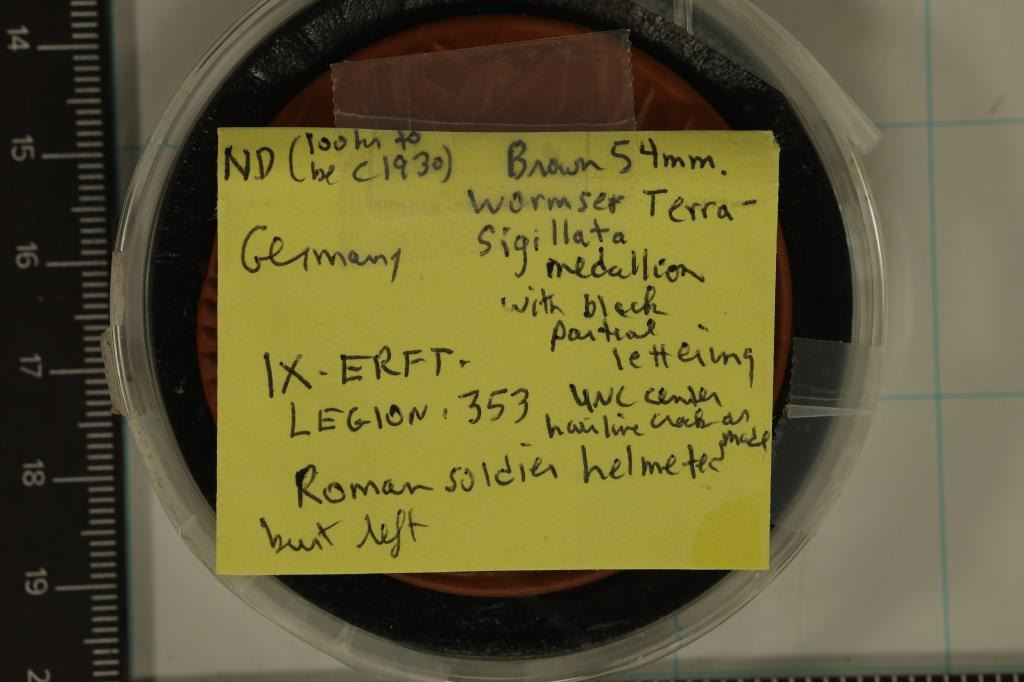 ND (looks to be c1930) Brown 54mm.
Wormser Terra-
Germany Sigillata
medallion
with black
partial
lettering
IX. ERFT.
LEGION. 353 UNC center
hairline crack as
made
Roman soldier helmeted
bust left
14
15
16
17
18
19
2